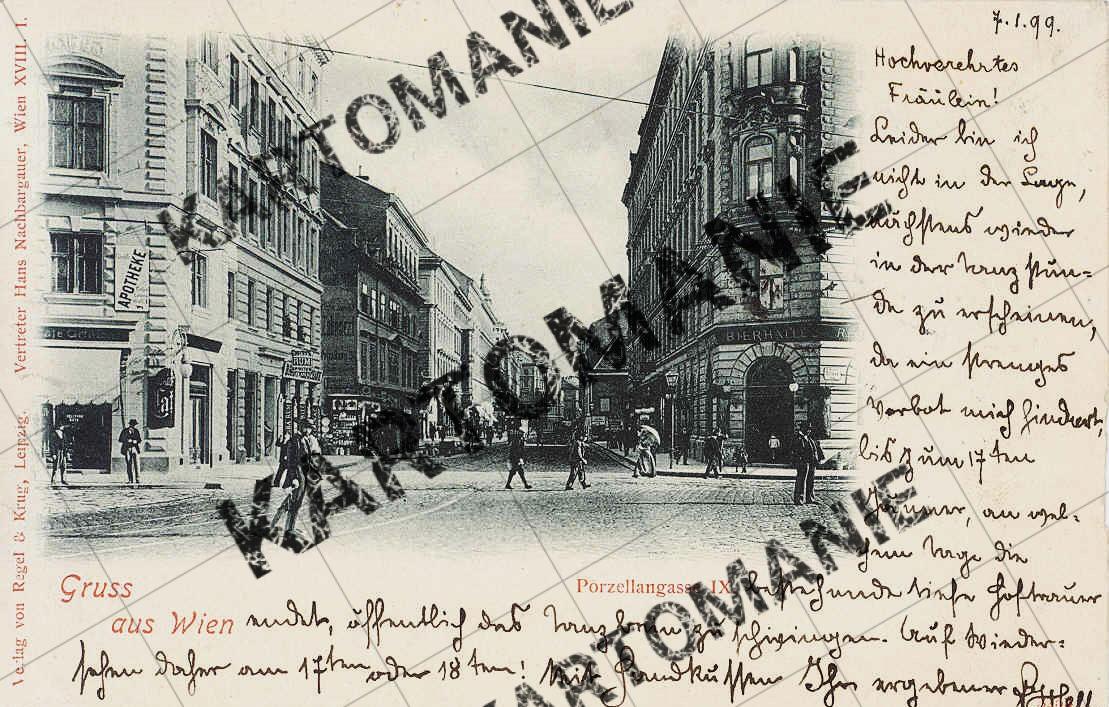 7.1.99.
Hochverehrtes
Fräulein!
Leider bin ich
nicht in der Lage,
nächstens wieder
in der Tanzstun-
de zu erscheinen,
da ein strenges
Verbot mich hindert,
bis zum 17ten
Jänner, an wel-
chem Tage die
bestehende tiefe Hoftrauer
endet, öffentlich das Tanzbein zu schwingen. Auf Wieder-
sehen daher am 17ten oder 18ten! Mit Handkussen Ihr ergebener
Gruss
aus Wien
Porzellangasse IX
Verlag von Regel & Krug, Leipzig. Vertreter Hans Nachbargauer, Wien XVIII. 1.
APOTHEKE
RUM
BIERHALLE
KARTOMANIE
KARTOMANIE
KARTOMANIE
KARTOMANIE